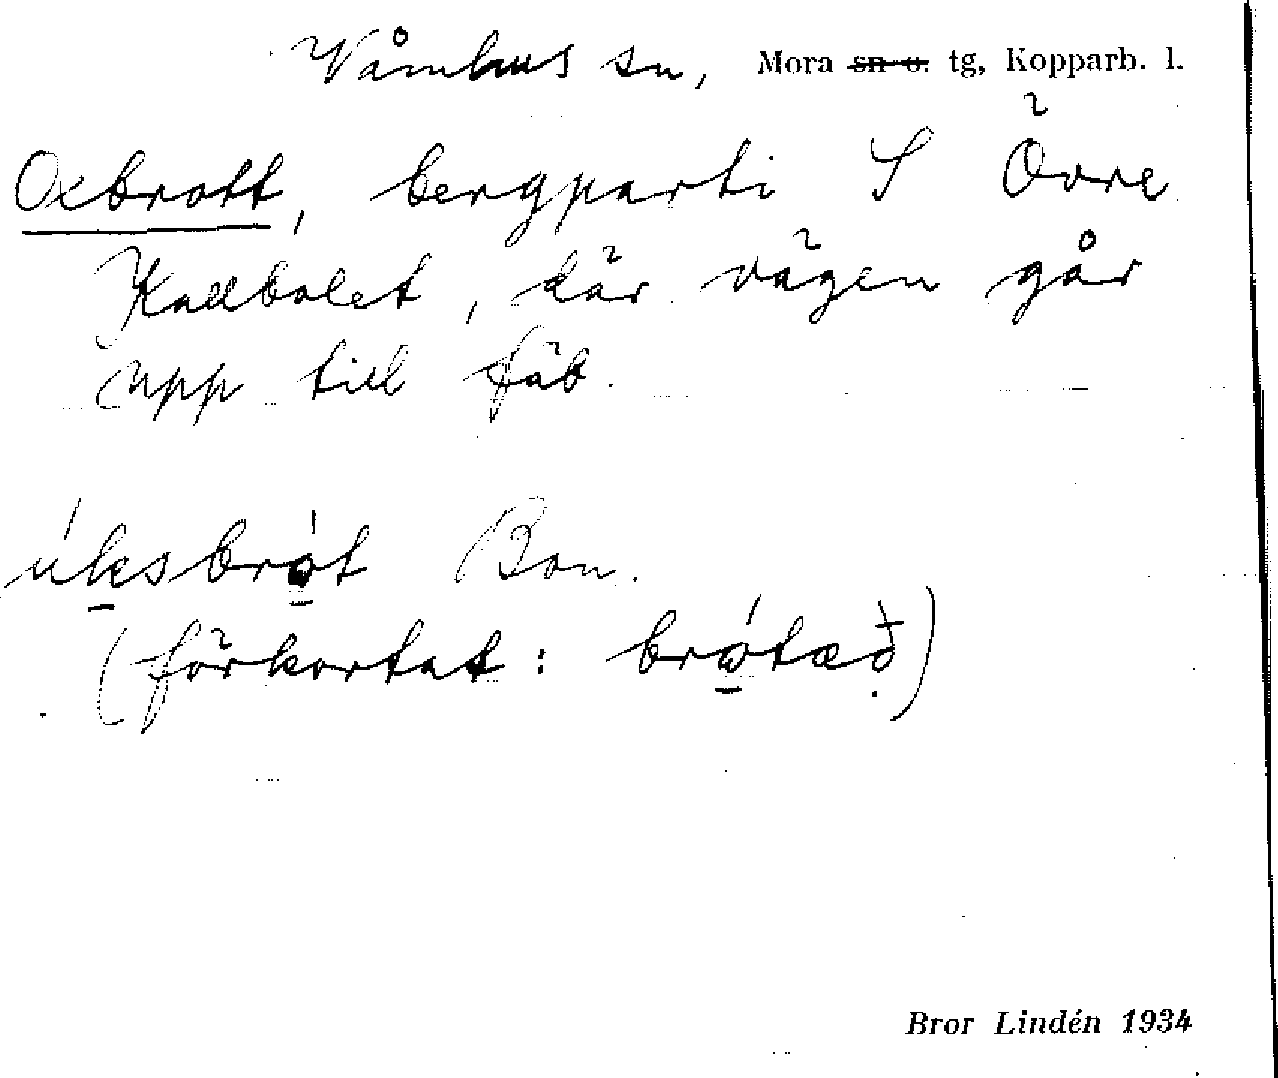 Våmhus sn, Mora sn o. tg, Kopparb. l.
Oxbrott, bergparti S Övre
Kallbolet, där vägen går
upp till fäb.
úksbrót Bon.
(förkortat: brótæð)
Bror Lindén 1934